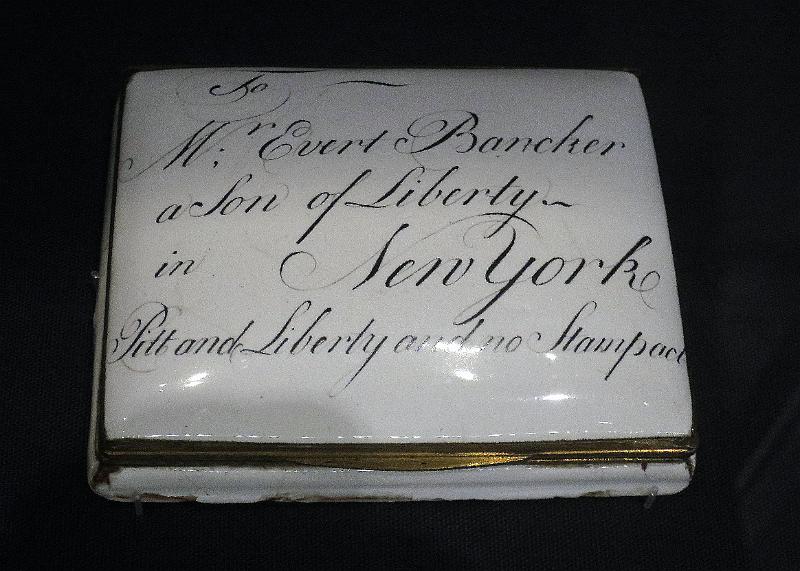 To
Mr. Evert Bancker
a Son of Liberty
in New York
Pitt and Liberty and no Stampact